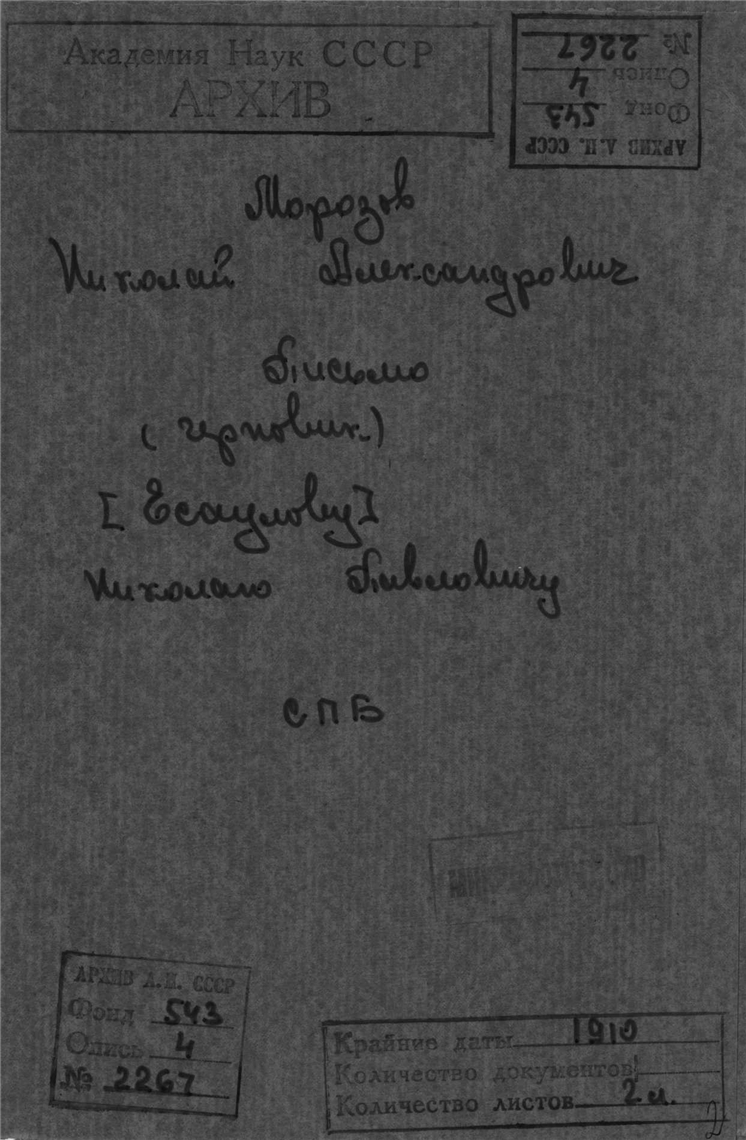 Академия Наук СССР
АРХИВ
АРХИВ А.Н. СССР
Фонд 543
Опись 4
№ 2267
Морозов
Николай Александрович
Письмо
(черновик.)
[Есаулову]
Николаю Павловичу
СПБ
АРХИВ А.Н. СССР
Фонд 543
Опись 4
№ 2267
Крайние даты 1910
Количество документов
Количество листов 2 л.